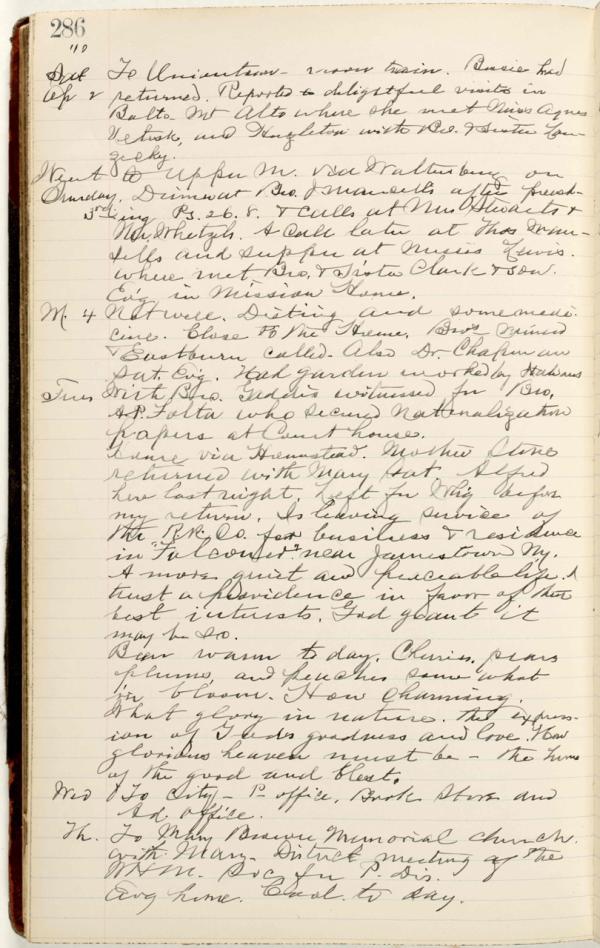 286
"10
Sat To Uniontown - noon train. Bessie had
Ap 2 returned. Reports delightful visits in
Balto. Mt Alto where she met Miss Agnes
and Hazleton with Bro. & Sister
Went to Upper M. via Waltersburg on
Sunday. Dinner at Bro. J Mansells after preach-
3rd ing Ps. 26.8. & calls at Mrs Stewarts &
Mr. Whetzels. A call later at Thos Man-
sells and supper at Misses Lewis.
where met Bro. & Sister Clark & son.
Ev'g in Mission Home.
M. 4 Not well. Dieting and some medi-
cine. Close to the Home. Bros
& Eastburn called. Also Dr. Chapman
Sat. Evg. Had garden worked by
Tues With Bro. Gaddis witnessed for Bro.
A.P. Folta who secured Nationalization
papers at Court house.
Came via Hempstead. Mother Stone
returned with Mary Sat. Alfred
here last night. Left for before
my return. Is leaving service of
the R.R. Co. for business & residence
in "Falconer" near Jamestown Ny.
A more quiet and peaceable life. I
trust a providence in favor of their
best interests. God grant it
may be so.
Bear warm to day. Cherries, pears
plums, and peaches some what
in bloom. How charming.
What glory in nature. the express-
ion of God's goodness and love. How
glorious heaven must be - the home
of the good and blest.
Wed To City - P. office, Book Store and
Ad. office.
Th. To Mary Brown Memorial Church.
with Mary. District meeting of the
W H M. Soc for P. Dis.
Evg home. Cool to day.